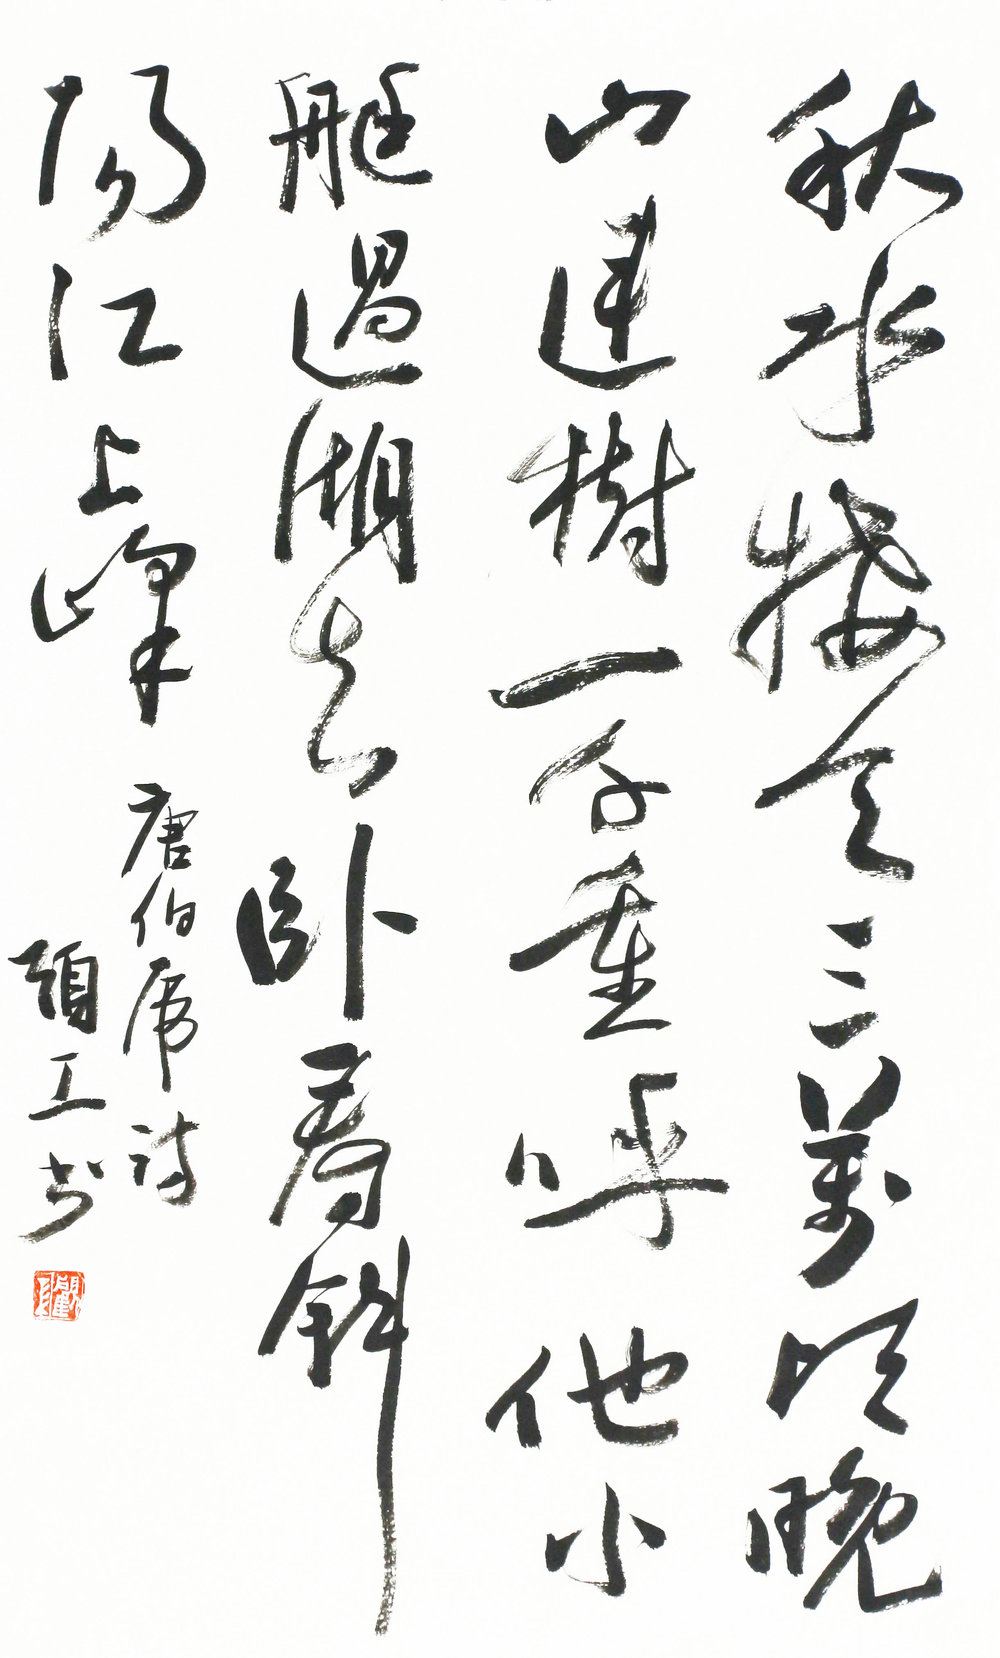 秋水接天三萬頃晚
山連樹一千重呼他小
艇過湖去臥看斜
陽江上峰
唐伯虎詩
頭工书